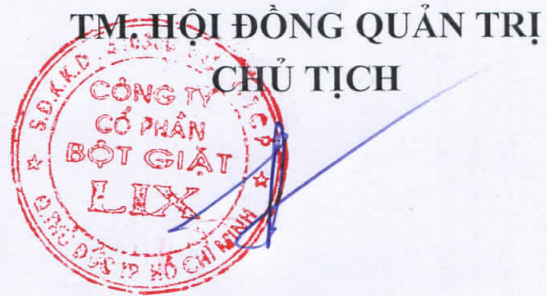 TM. HỘI ĐỒNG QUẢN TRỊ
CHỦ TỊCH
CÔNG TY
CỔ PHẦN
BỘT GIẶT
LIX
Q. THỦ ĐỨC TP. HỒ CHÍ MINH